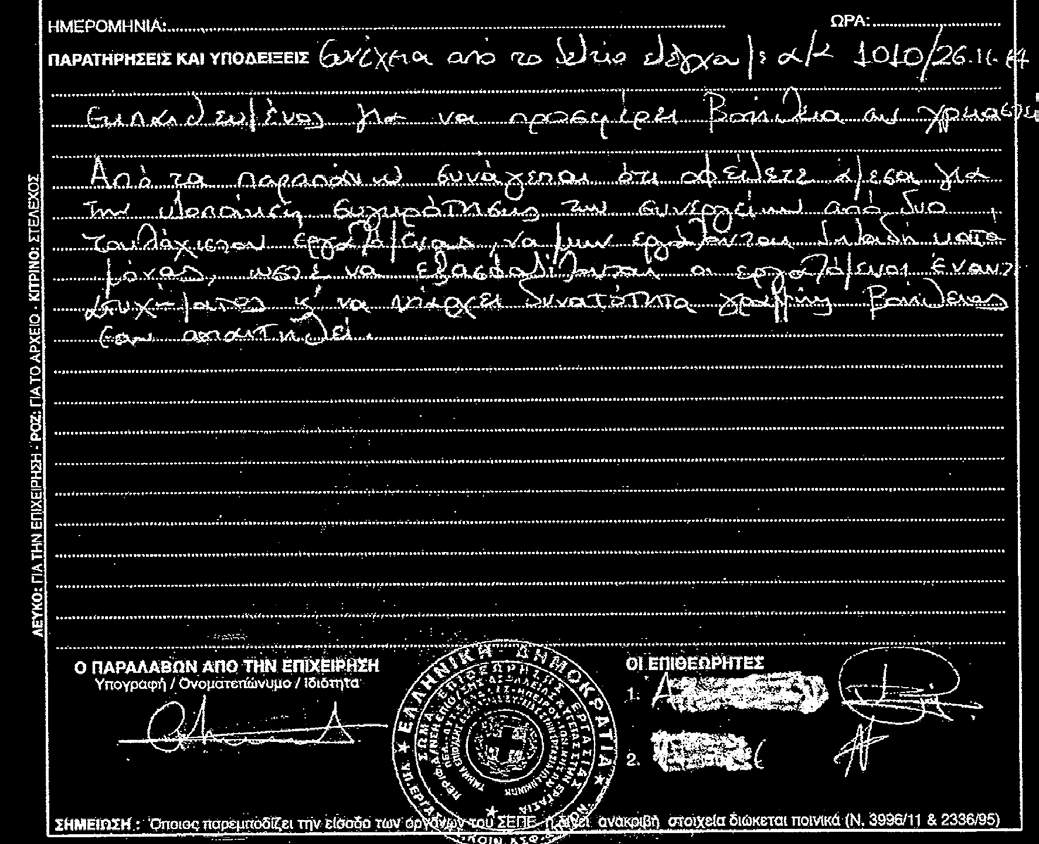 ΗΜΕΡΟΜΗΝΙΑ: ΩΡΑ:
ΠΑΡΑΤΗΡΗΣΕΙΣ ΚΑΙ ΥΠΟΔΕΙΞΕΙΣ Συνέχεια από το δελτίο ελέγχου με α/α 1010/26.11.
Εκπαιδευμένος για να προσφέρει βοήθεια αν χρειαστεί
Από τα παραπάνω συνάγεται ότι οφείλετε άμεσα για
την υλοποίηση συγκρότησης των συνεργείων από δυο
τουλάχιστον εργαζόμενους, να μην εργάζονται δηλαδή κατά
μόνας, ώστε να εξασφαλίζονται οι εργαζόμενοι έναντι
ατυχήματος κ' να υπάρχει δυνατότητα παροχής βοήθειας
εαν απαιτηθεί.
ΛΕΥΚΟ: ΓΙΑ ΤΗΝ ΕΠΙΧΕΙΡΗΣΗ - ΡΟΖ: ΓΙΑ ΤΟ ΑΡΧΕΙΟ - ΚΙΤΡΙΝΟ: ΣΤΕΛΕΧΟΣ
Ο ΠΑΡΑΛΑΒΩΝ ΑΠΟ ΤΗΝ ΕΠΙΧΕΙΡΗΣΗ
Υπογραφή / Ονοματεπώνυμο / Ιδιότητα
ΕΛΛΗΝΙΚΗ ΔΗΜΟΚΡΑΤΙΑ
ΟΙ ΕΠΙΘΕΩΡΗΤΕΣ
1.
2.
ΣΗΜΕΙΩΣΗ : Όποιος παρεμποδίζει την είσοδο των οργάνων του ΣΕΠΕ ή δίνει ανακριβή στοιχεία διώκεται ποινικά (Ν. 3996/11 & 2336/95)